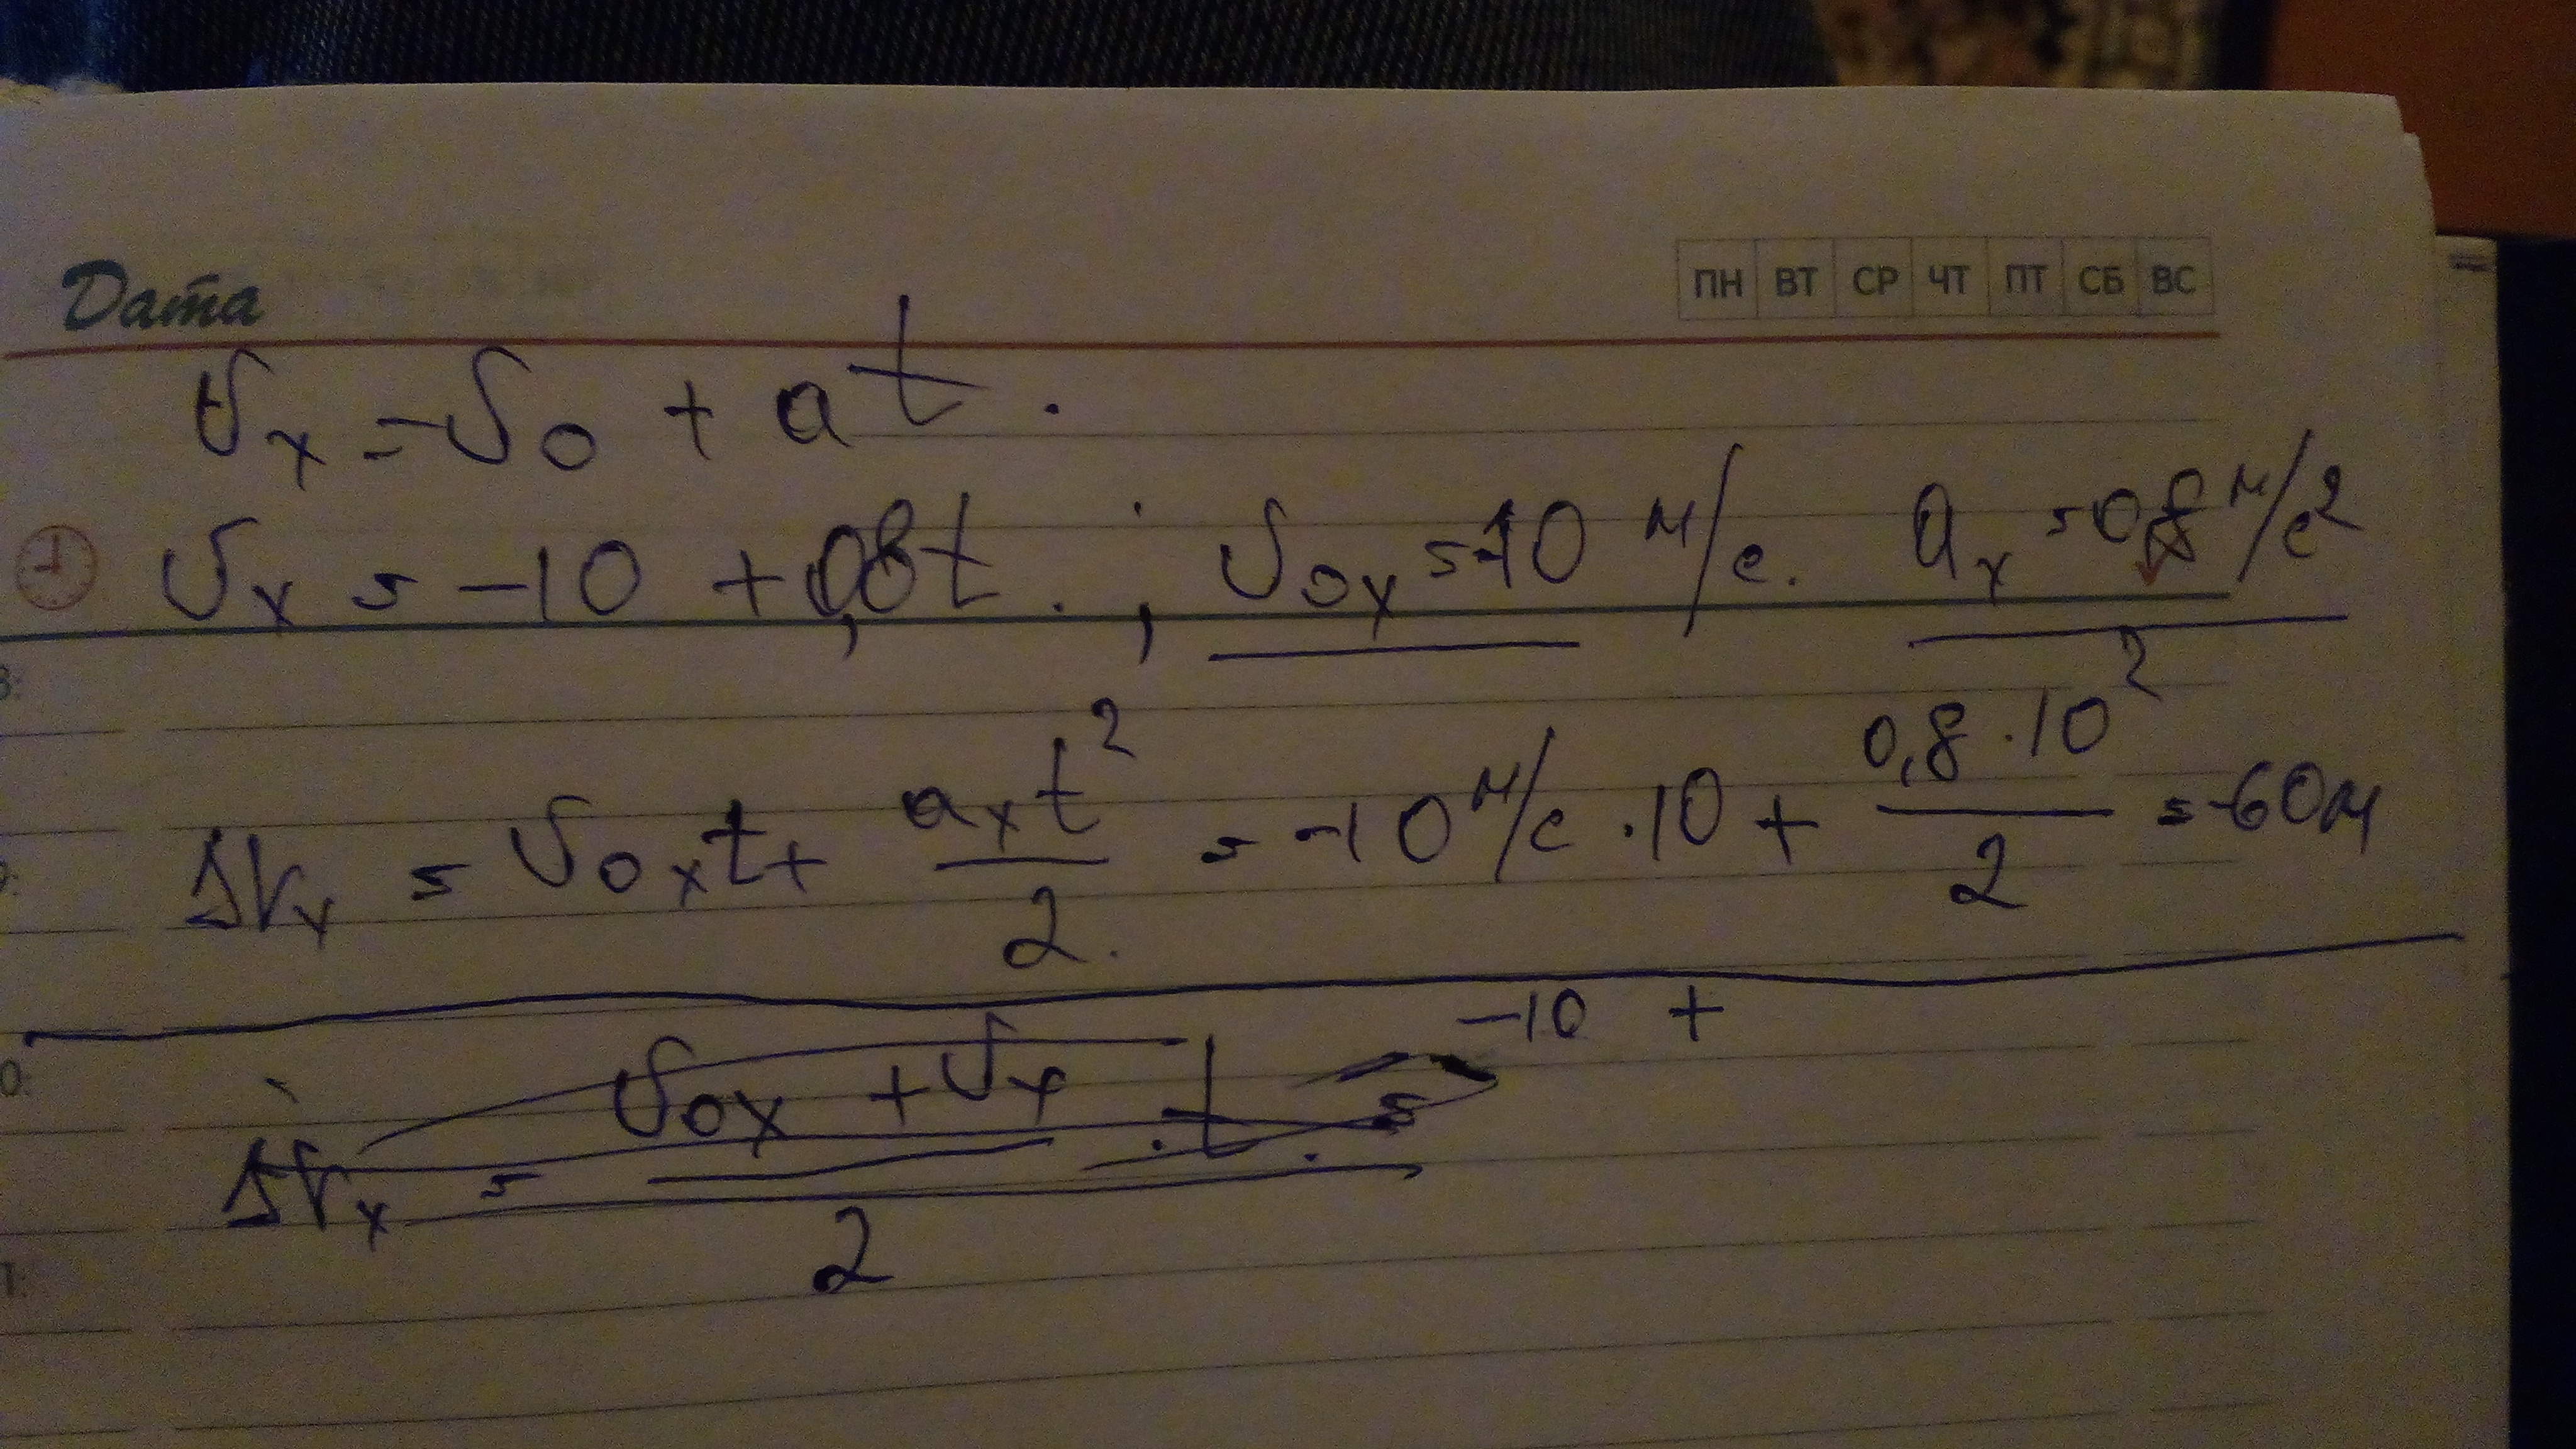 Дата ПН ВТ СР ЧТ ПТ СБ ВС
υₓ = υ₀ + at.
υₓ = -10 + 0,8t. ; υ₀ₓ = -10 м/с. aₓ = 0,8 м/с²
Δrₓ = υ₀ₓt + aₓt²/2. = -10 м/с · 10 + 0,8 · 10²/2 = -60м
-10 +
Δrₓ = υ₀ₓ + υₓ/2 · t =